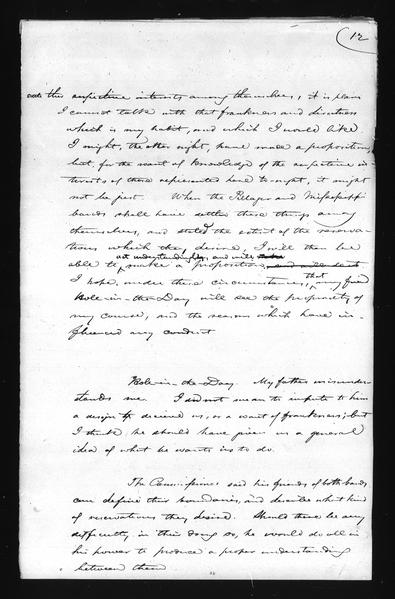 12
their respective interests among themselves, it is plain
I cannot talk with that frankness and directness
which is my habit, and which I would like
I might, the other night, have made a proposition,
but, for the want of knowledge of the respective in-
terests of those represented here to-night, it might
not be just. When the Pillager and Mississippi
bands shall have settled these things among
themselves, and stated the extent of the reserva-
tions which they desire, I will then be
act understandingly, and will
able to make a proposition
I hope, under these circumstances, that my friend
Hole-in-the-Day will see the propriety of
my course, and the reasons which have in-
fluenced my conduct
Hole-in-the-Day. My father misunder-
stands me. I did not mean to impute to him
a design to deceive us, or a want of frankness; but
I think he should have given us a general
idea of what he wants us to do.
The Commissioner said his friends of both bands
can define their boundaries, and describe what kind
of reservations they desire. Should there be any
difficulty in their doing so, he would do all in
his power to produce a proper understanding
between them